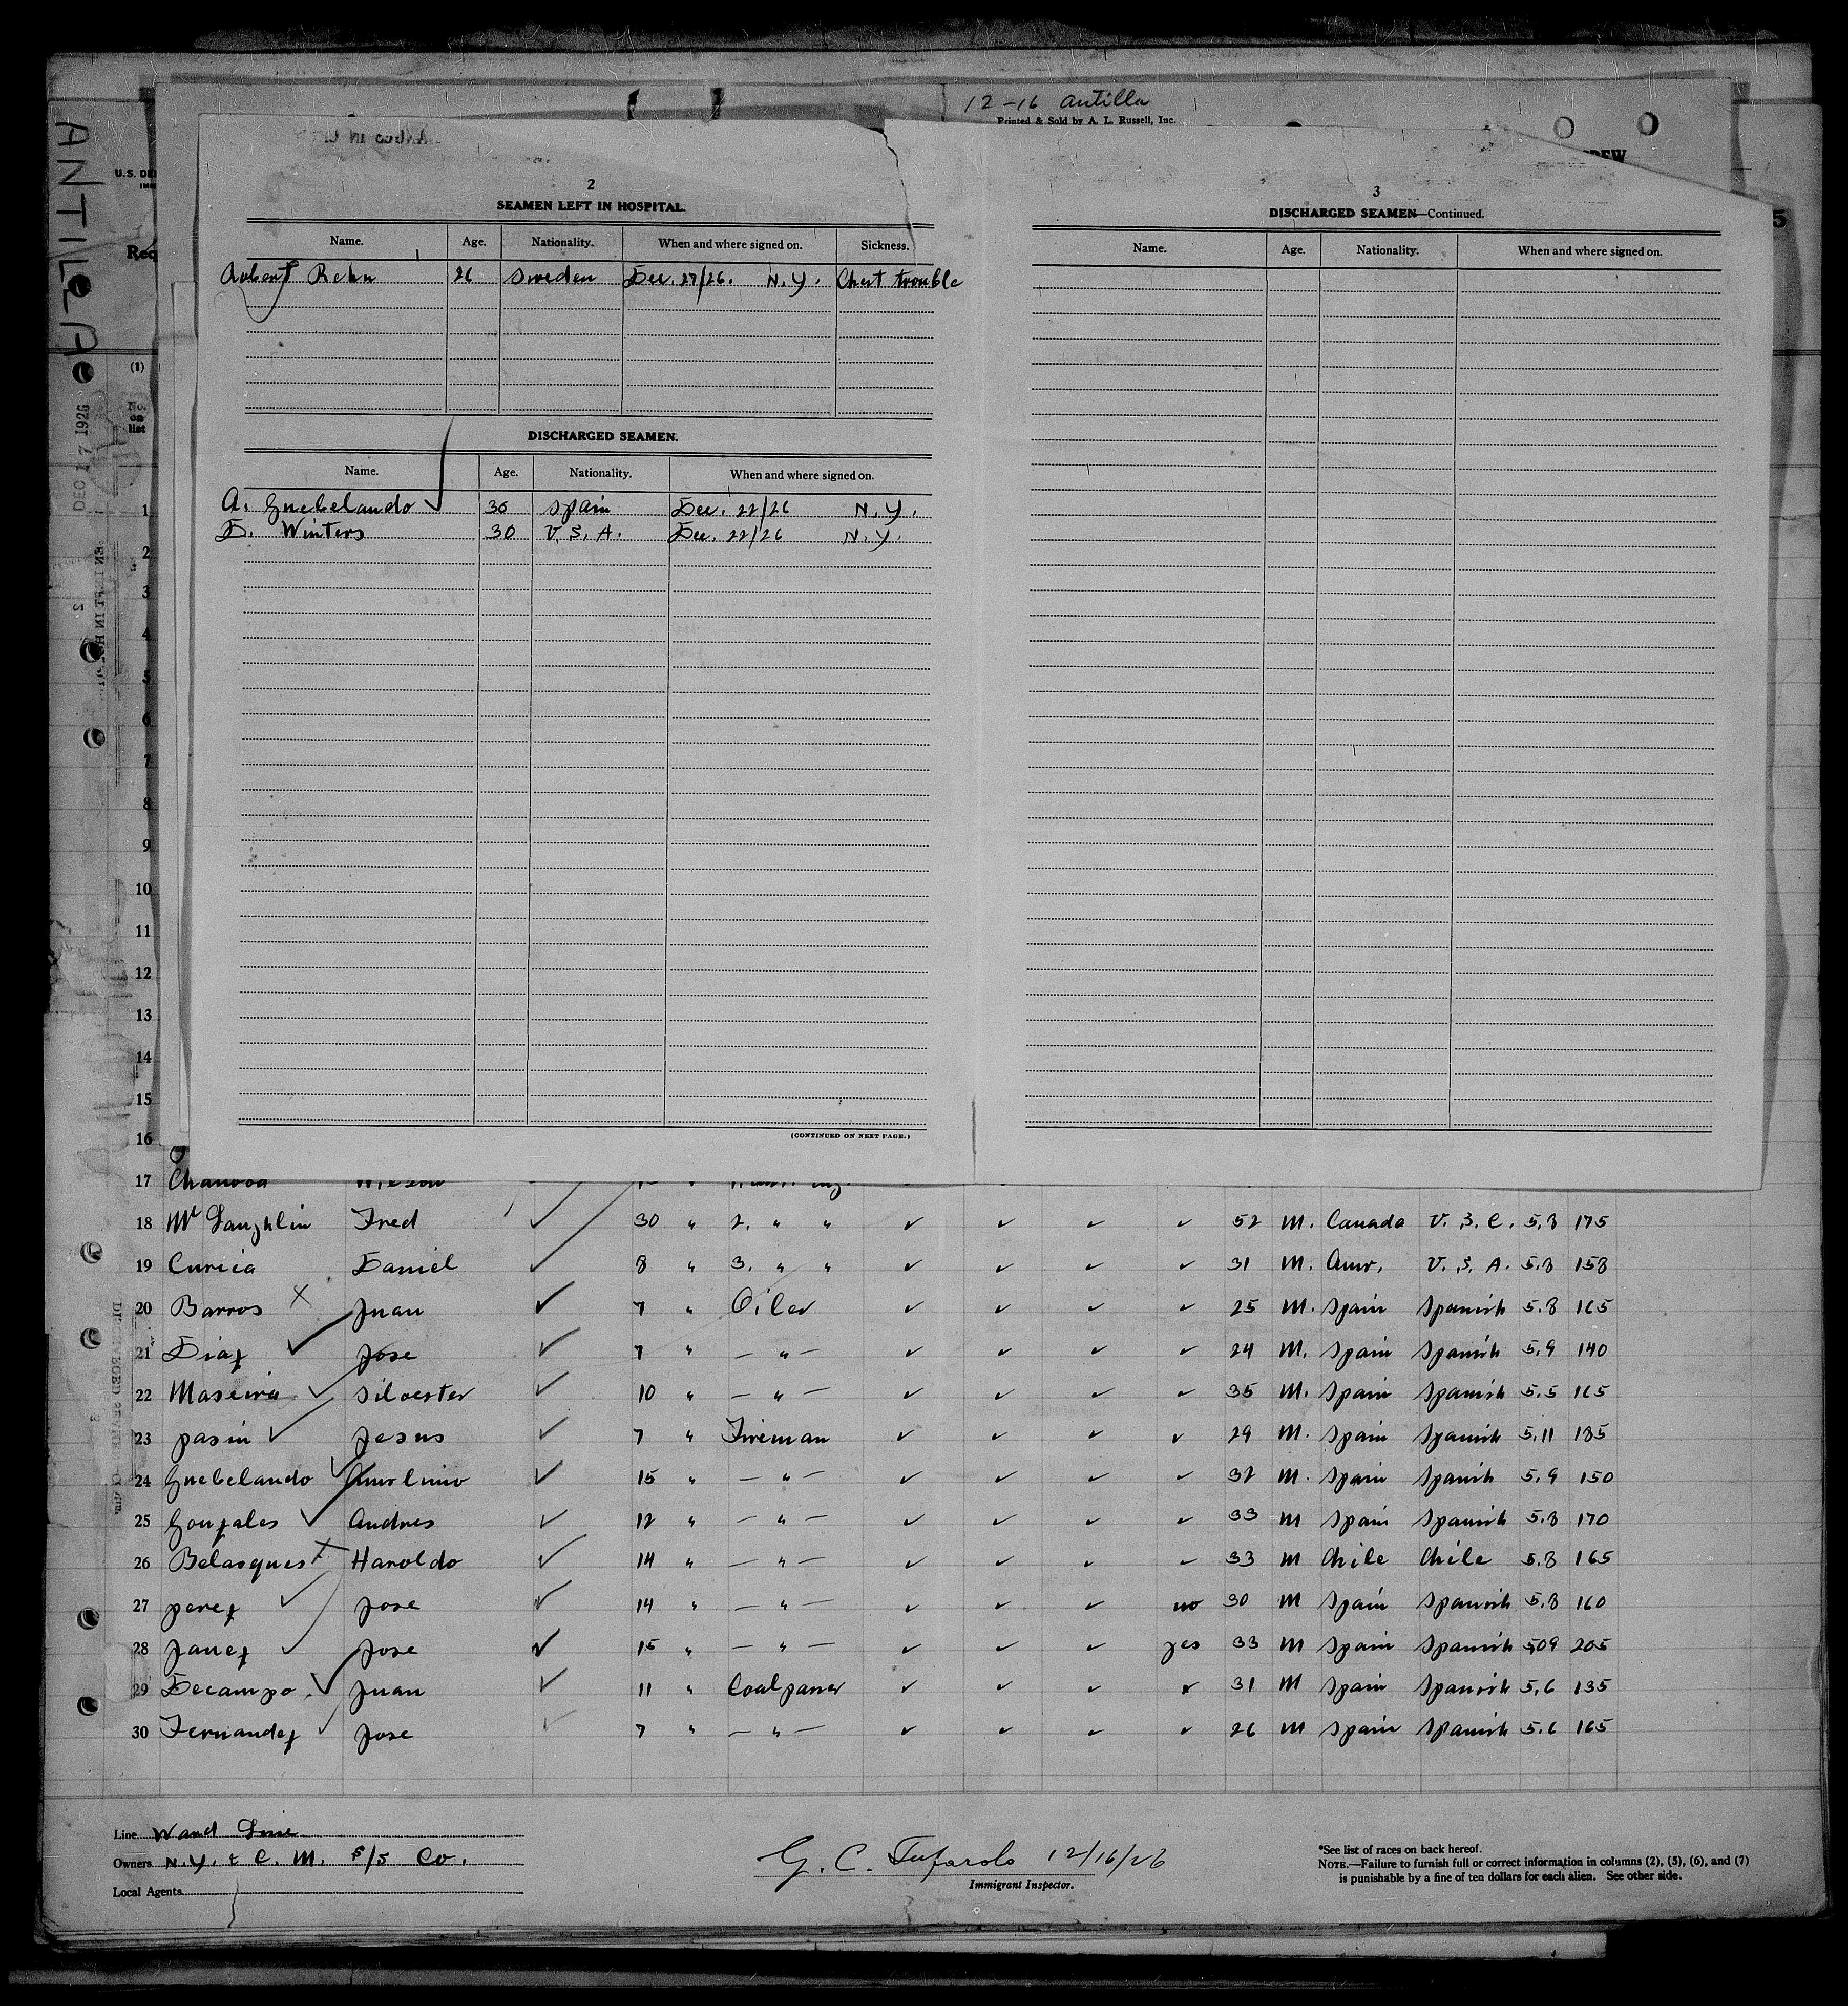 12-16 Antilla
Printed & Sold by A. L. Russell, Inc.
ANTILLA
DEC 17 1926
U.S. DE
IMM
Req
(1)
No. on list
2
SEAMEN LEFT IN HOSPITAL.
Name. Age. Nationality. When and where signed on. Sickness.
Rehn 26 Sweden Dec. 27/26. N.Y. Chest trouble
DISCHARGED SEAMEN.
Name. Age. Nationality. When and where signed on.
A. Guebelando 30 Spain Dec. 22/26 N.Y.
D. Winters 30 U.S.A. Dec. 22/26 N.Y.
(CONTINUED ON NEXT PAGE.)
3
DISCHARGED SEAMEN—Continued.
Name. Age. Nationality. When and where signed on.
5
1
2
3
4
5
6
7
8
9
10
11
12
13
14
15
16
17
18 Mc Laughlin Fred ✓ 30 " 2. " " ✓ ✓ ✓ ✓ 52 M. Canada 5,8 175
19 Curica Daniel ✓ 8 " 3. " " ✓ ✓ ✓ ✓ 31 M. Amr. U.S.A. 5.8 158
20 Barros X Juan ✓ 7 " Oiler ✓ ✓ ✓ ✓ 25 M. Spain Spanish 5.8 165
21 Diaz ✓ Jose ✓ 7 " — " — ✓ ✓ ✓ ✓ 24 M. Spain Spanish 5,9 140
22 Maseira ✓ Silvester ✓ 10 " — " — ✓ ✓ ✓ ✓ 35 M. Spain Spanish 5,5 165
23 Pasin ✓ Jesus ✓ 7 " Fireman ✓ ✓ ✓ ✓ 29 M. Spain Spanish 5,11 185
24 Guebelando ✓ ✓ 15 " — " — ✓ ✓ ✓ ✓ 32 M. Spain Spanish 5,9 150
25 Gonzales ✓ Andres ✓ 12 " — " — ✓ ✓ ✓ ✓ 33 M Spain Spanish 5.8 170
26 Belasques X Haroldo ✓ 14 " — " — ✓ ✓ ✓ ✓ 33 M Chile Chile 5,8 165
27 Perez ✓ Jose ✓ 14 " — " — ✓ ✓ ✓ no 30 M Spain Spanish 5,8 160
28 Janez ✓ Jose ✓ 15 " — " — ✓ ✓ ✓ yes 33 M Spain Spanish 509 205
29 Decampo ✓ Juan ✓ 11 " Coalpasser ✓ ✓ ✓ ✓ 31 M Spain Spanish 5,6 135
30 Fernandez ✓ Jose ✓ 7 " — " — ✓ ✓ ✓ ✓ 26 M Spain Spanish 5.6 165
Line Ward Line
Owners N.Y. & C. M. S/S Co.
Local Agents
G. C. Tufarolo 12/16/26
Immigrant Inspector.
*See list of races on back hereof.
NOTE.—Failure to furnish full or correct information in columns (2), (5), (6), and (7)
is punishable by a fine of ten dollars for each alien. See other side.